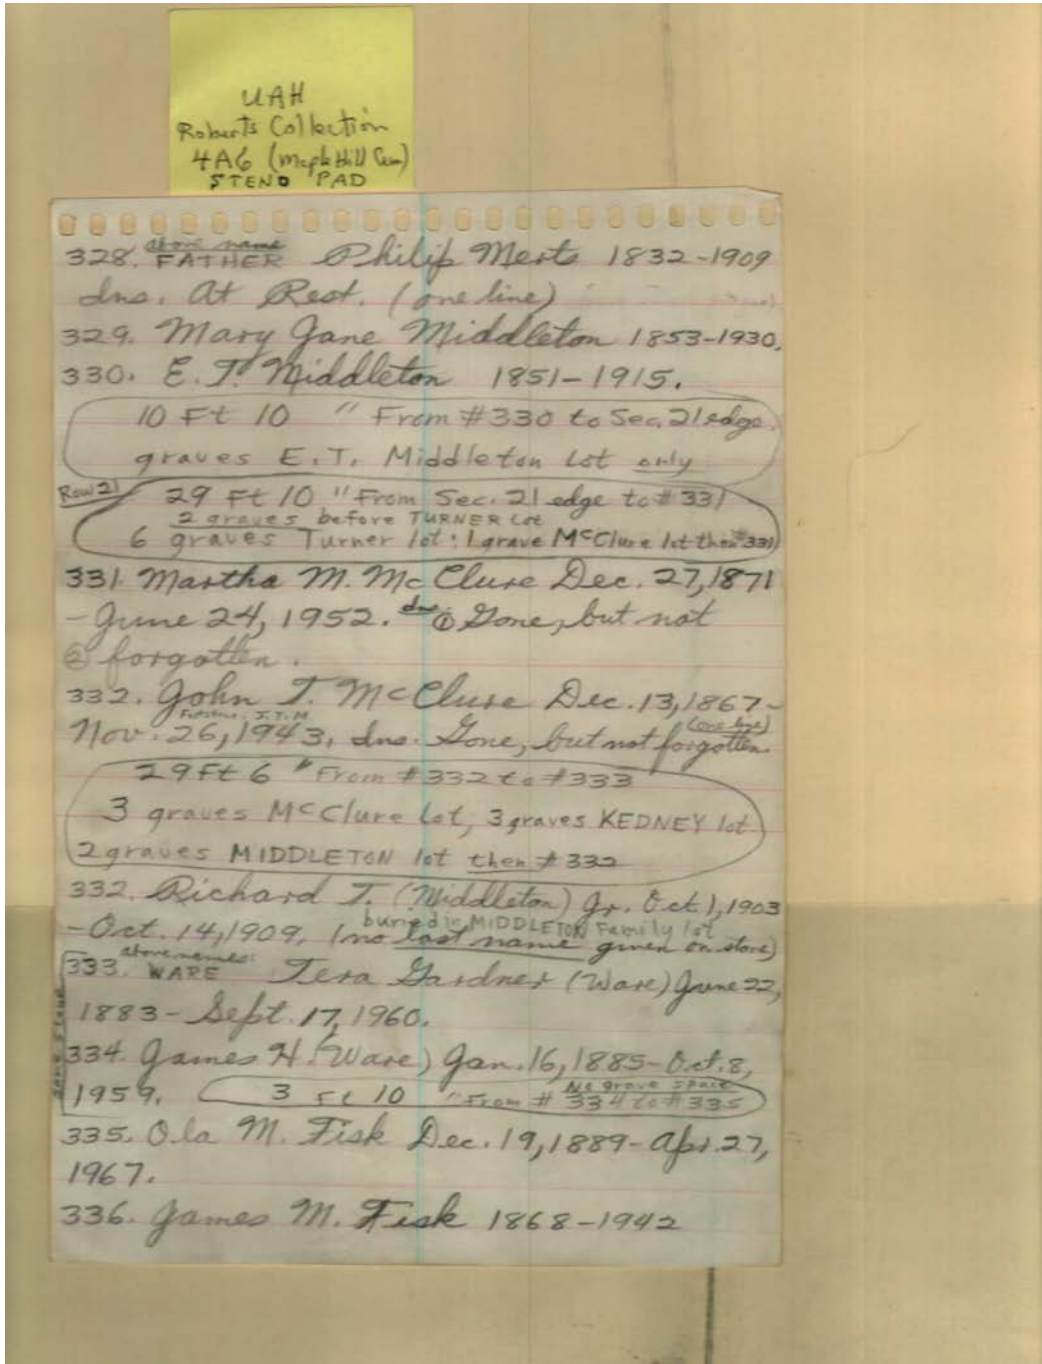 UAH
Roberts Collection
4A6 (Maple Hill Cem)
STENO PAD
above name
328. FATHER Philip Merts 1832-1909
dns. At Rest. (one line)
329. Mary Jane Middleton 1853-1930,
330. E.T. Middleton 1851-1915.
10 Ft 10 " From #330 to Sec. 21 edge.
graves E.T. Middleton Lot only
Row 2)
29 Ft 10 " From Sec. 21 edge to #331
2 graves before TURNER Lot
6 graves Turner lot: 1 grave McClure lot then #331
331. Martha M. McClure Dec. 27, 1871
-June 24, 1952. dns. ① Gone, but not
② forgotten.
332. John T. McClure Dec. 13, 1867-
Footstone: J.T.M. (one line)
Nov. 26, 1943, dns. Gone, but not forgotten.
29 Ft 6 " From #332 to #333
3 graves McClure Lot, 3 graves KEDNEY lot
2 graves MIDDLETON lot then #332
332. Richard T. (Middleton) Jr. Oct 1, 1903
buried in MIDDLETON Family lot
-Oct. 14, 1909. (no last name given on stone)
above names:
333. WARE Tera Gardner (Ware) June 22,
1883- Sept. 17, 1960.
same stone
334. James H. (Ware) Jan. 16, 1885- Oct. 8,
No grave space
1959. 3 Ft 10 " From # 334 to #335
335. Ola M. Fisk Dec. 19, 1889- Apr. 27,
1967.
336. James M. Fisk 1868-1942